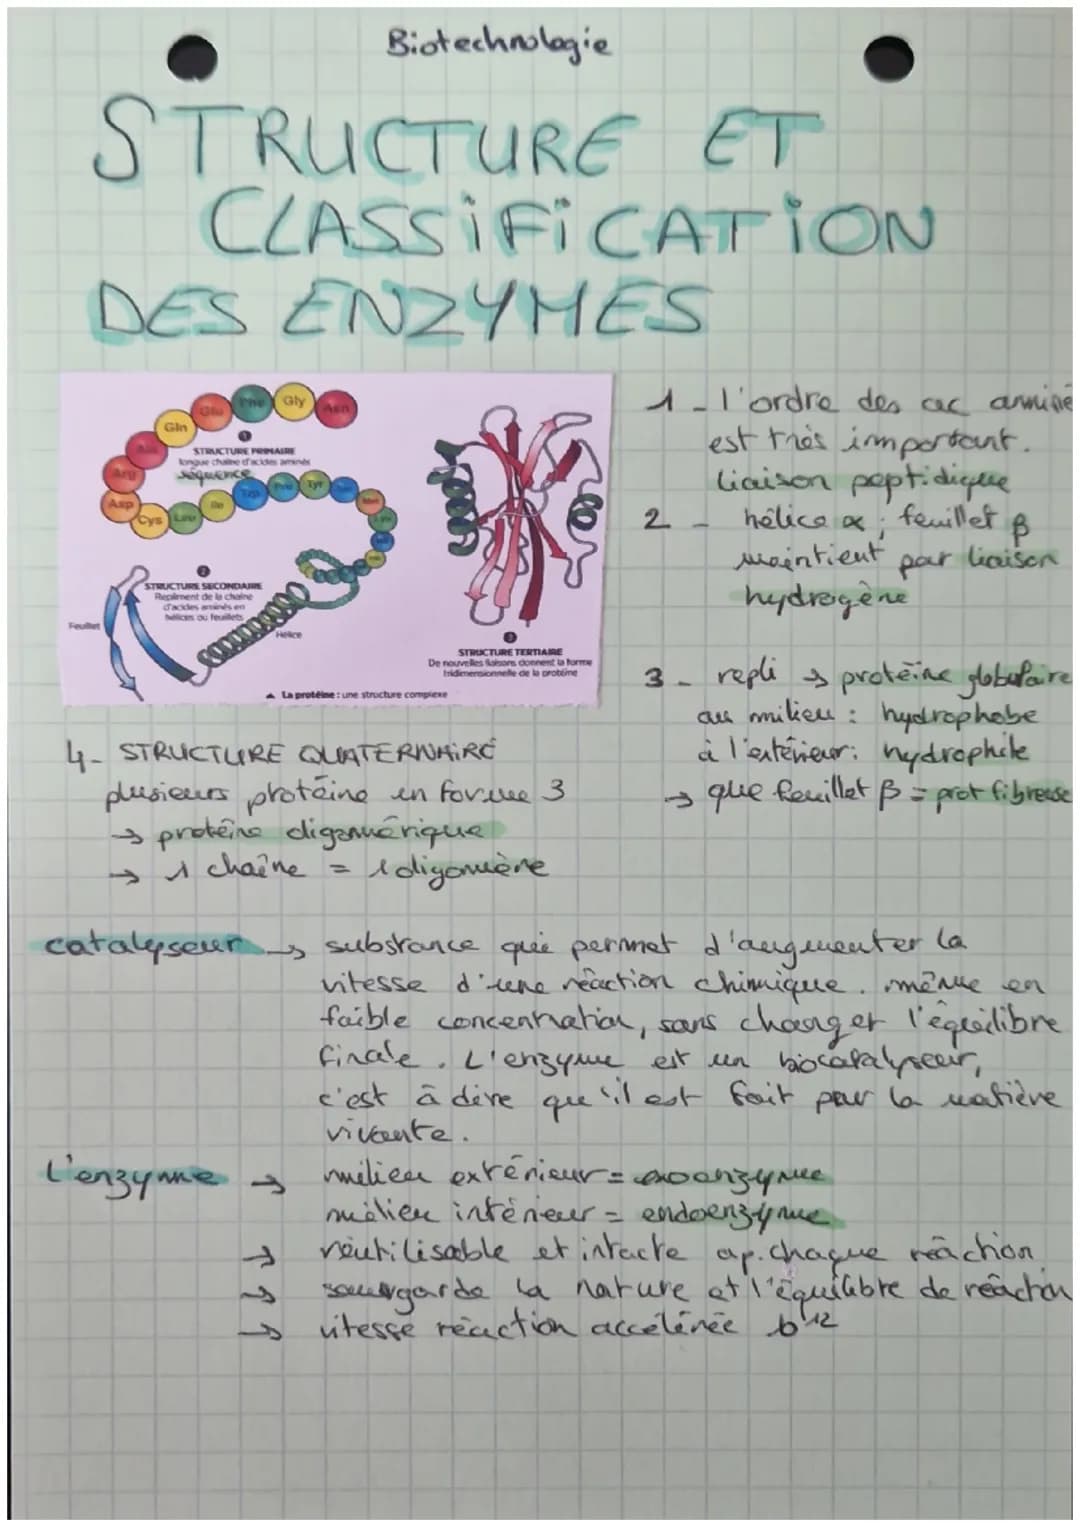 Biotechnologie
STRUCTURE ET
CLASSiFiCATiON
DES ENZYMES
Glu Phe Gly Asn
Gln
Ala
Arg
Asp
Cys Leu Ile Trp Pro Tyr
Met
Lys
1
STRUCTURE PRIMAIRE
longue chaîne d'acides aminés
séquence
2
STRUCTURE SECONDAIRE
Repliment de la chaîne
d'acides aminés en
hélices ou feuillets
Feuillet
Hélice
3
STRUCTURE TERTIAIRE
De nouvelles liaisons donnent la forme
tridimensionnelle de la protéine
▲ La protéine : une structure complexe
1 - l'ordre des ac aminé
est très important.
Liaison peptidique
2 - hélice α ; feuillet β
maintient par liaison
hydrogène
3 - repli → protéine globulaire
au milieu : hydrophobe
à l'extérieur : hydrophile
→ que feuillet β = prot fibreuse
4- STRUCTURE QUATERNAiRE
plusieurs protéine en forme 3
→ protéine oligomérique
→ 1 chaîne = 1 oligomère
catalyseur → substance qui permet d'augmenter la
vitesse d'une réaction chimique. même en
faible concentration, sans changer l'équilibre
finale. L'enzyme est un biocatalyseur,
c'est à dire qu'il est fait par la matière
vivante.
L'enzyme → milieu extérieur = exoenzyme
milieu intérieur = endoenzyme
→ réutilisable et intacte ap. chaque réaction
→ sauvgarde la nature et l'équilibre de réaction
→ vitesse réaction accélérée b^12